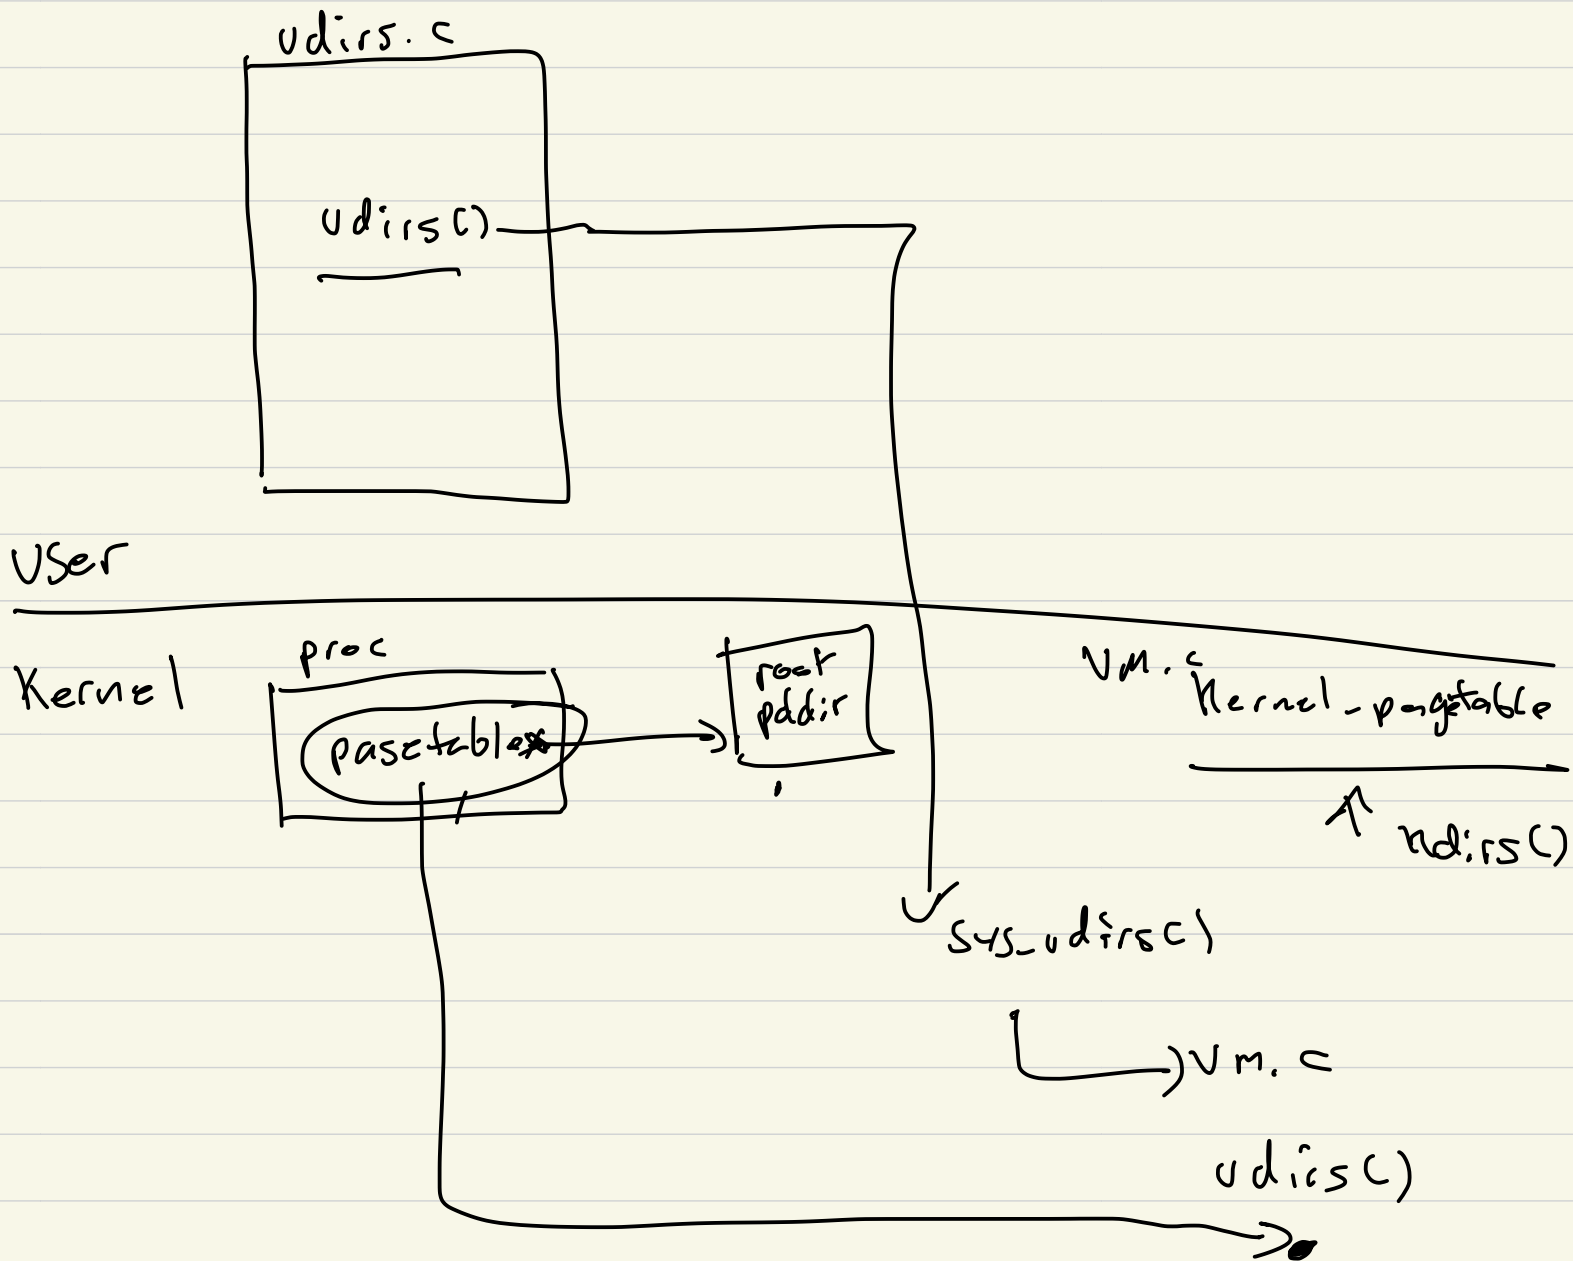 udirs.c
udirs()
User
Kernel
proc
pagetable*
root
pddir
vm.c
Kernel_pagetable
kdirs()
sys_udirs()
vm.c
udirs()